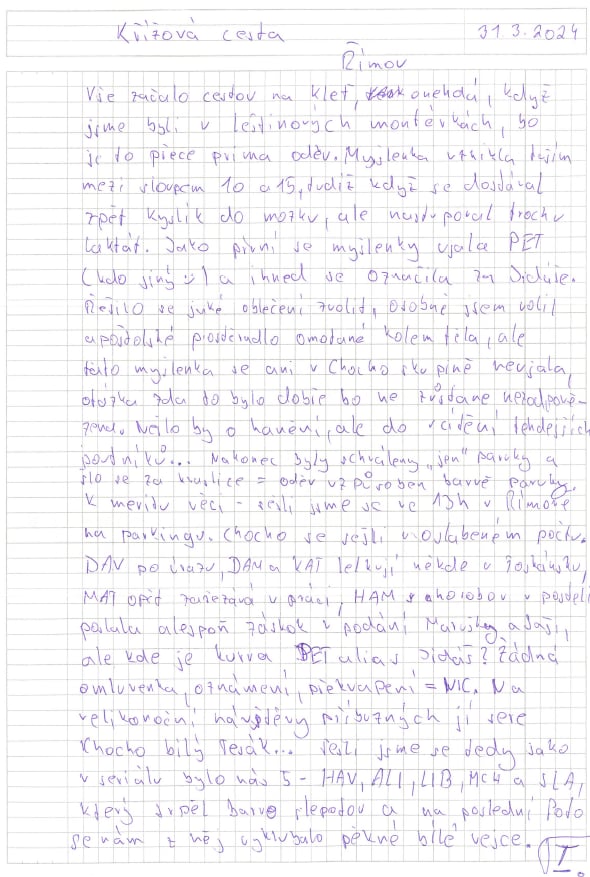 Křížová cesta 31.3.2024
Římov
Vše začalo cestou na Kleť, onehdá, když
jsme byli v leštinových montérkách, bo
je to přece prima oděv. Myšlenka vznikla tuším
mezi sloupem 10 a 15, tudíž když se dostával
zpět kyslík do mozku, ale nastupoval trochu
laktát. Jako první se myšlenky ujala PET
(kdo jiný :-) a ihned se označila za Jidáše.
Řešilo se jaké oblečení zvolit, osobně jsem volil
apoštolské prostěradlo omotané kolem těla, ale
tato myšlenka se ani v Chocho skupině neujala,
otázka zda to bylo dobře bo ne zůstane nezodpově-
zena. Nešlo by o hanění, ale do vcítění tehdejších
poutníků... Nakonec byly schváleny „jen" paruky a
šlo se za kraslice = oděv uzpůsoben barvě paruky.
K meritu věci - sešli jsme se ve 13h v Římově
na parkingu. Chocho se sešli v oslabeném počtu.
DAV po úrazu, DAM a KAT lelkují někde v Toskánsku,
MAT opět zařezává v práci, HAM s chorobou v posteli
poslala alespoň záskok v podání Marušky a Saši,
ale kde je kurva PET alias Jidáš? Žádná
omluvenka, oznámení, překvapení = NIC. Na
velikonoční návštěvy příbuzných jí sere
Chocho bílý tesák... Sešli jsme se tedy jako
v seriálu bylo nás 5 - HAV, ALI, LIB, MCH a SLA,
který trpěl barvo slepotou a na poslední foto
se nám z něj vyklubalo pěkné bílé vejce. I.